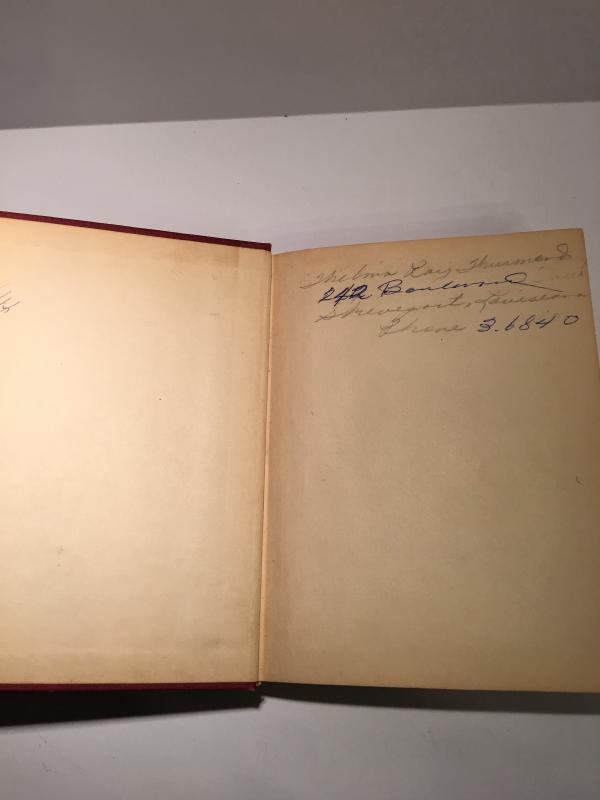 Thelma Thurmond
242 Boulevard
Shreveport, Louisiana
Phone 3.6840